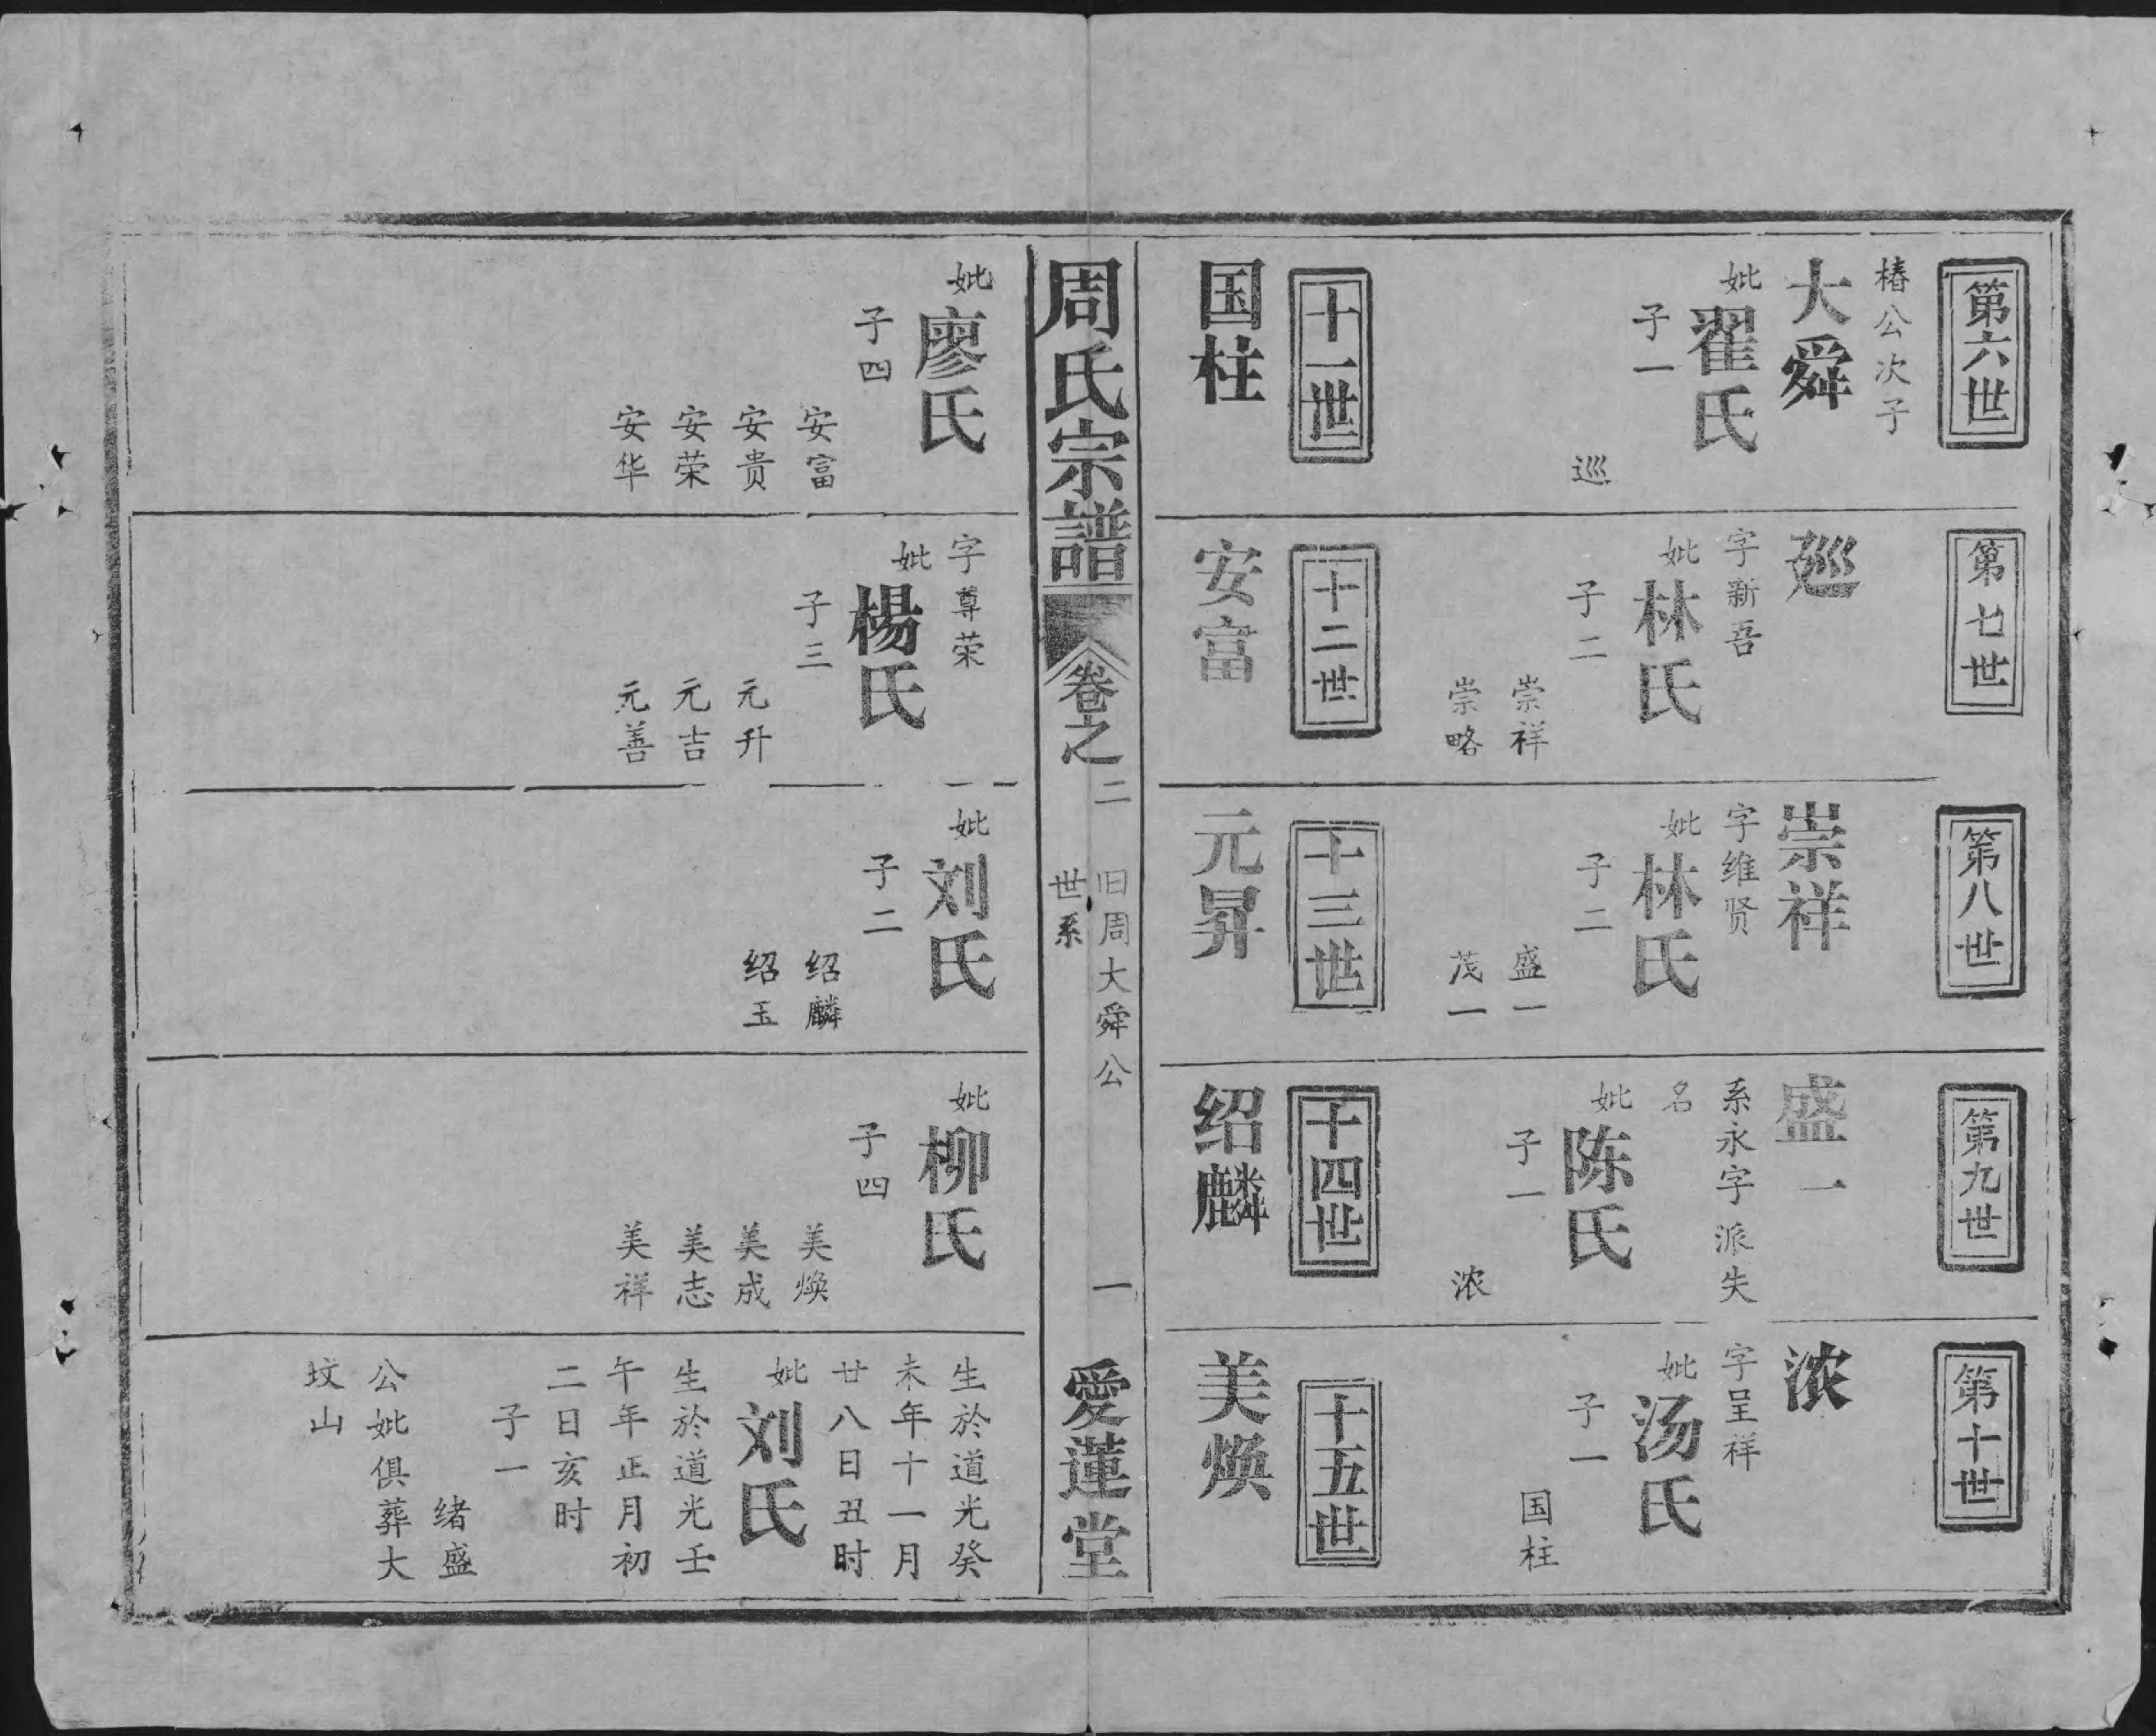 第六世
椿公次子
大舜
妣翟氏
子一
巡
第七世
廵
字新吾
妣林氏
子二
崇祥
崇略
第八世
崇祥
字维贤
妣林氏
子二
盛一
茂一
第九世
盛一
系永字派失
名
妣陈氏
子一
浓
第十世
浓
字呈祥
妣汤氏
子一
国柱
十一世
国柱
十二世
安富
十三世
元昇
十四世
绍麟
十五世
美焕
周氏宗譜
卷之二
旧周大舜公
世系
一
愛蓮堂
妣廖氏
子四
安富
安贵
安荣
安华
字尊荣
妣楊氏
子三
元升
元吉
元善
妣刘氏
子二
绍麟
绍玉
妣柳氏
子四
美焕
美成
美志
美祥
生於道光癸
未年十一月
廿八日丑时
妣刘氏
生於道光壬
午年正月初
二日亥时
子一
绪盛
公妣俱葬大
坟山